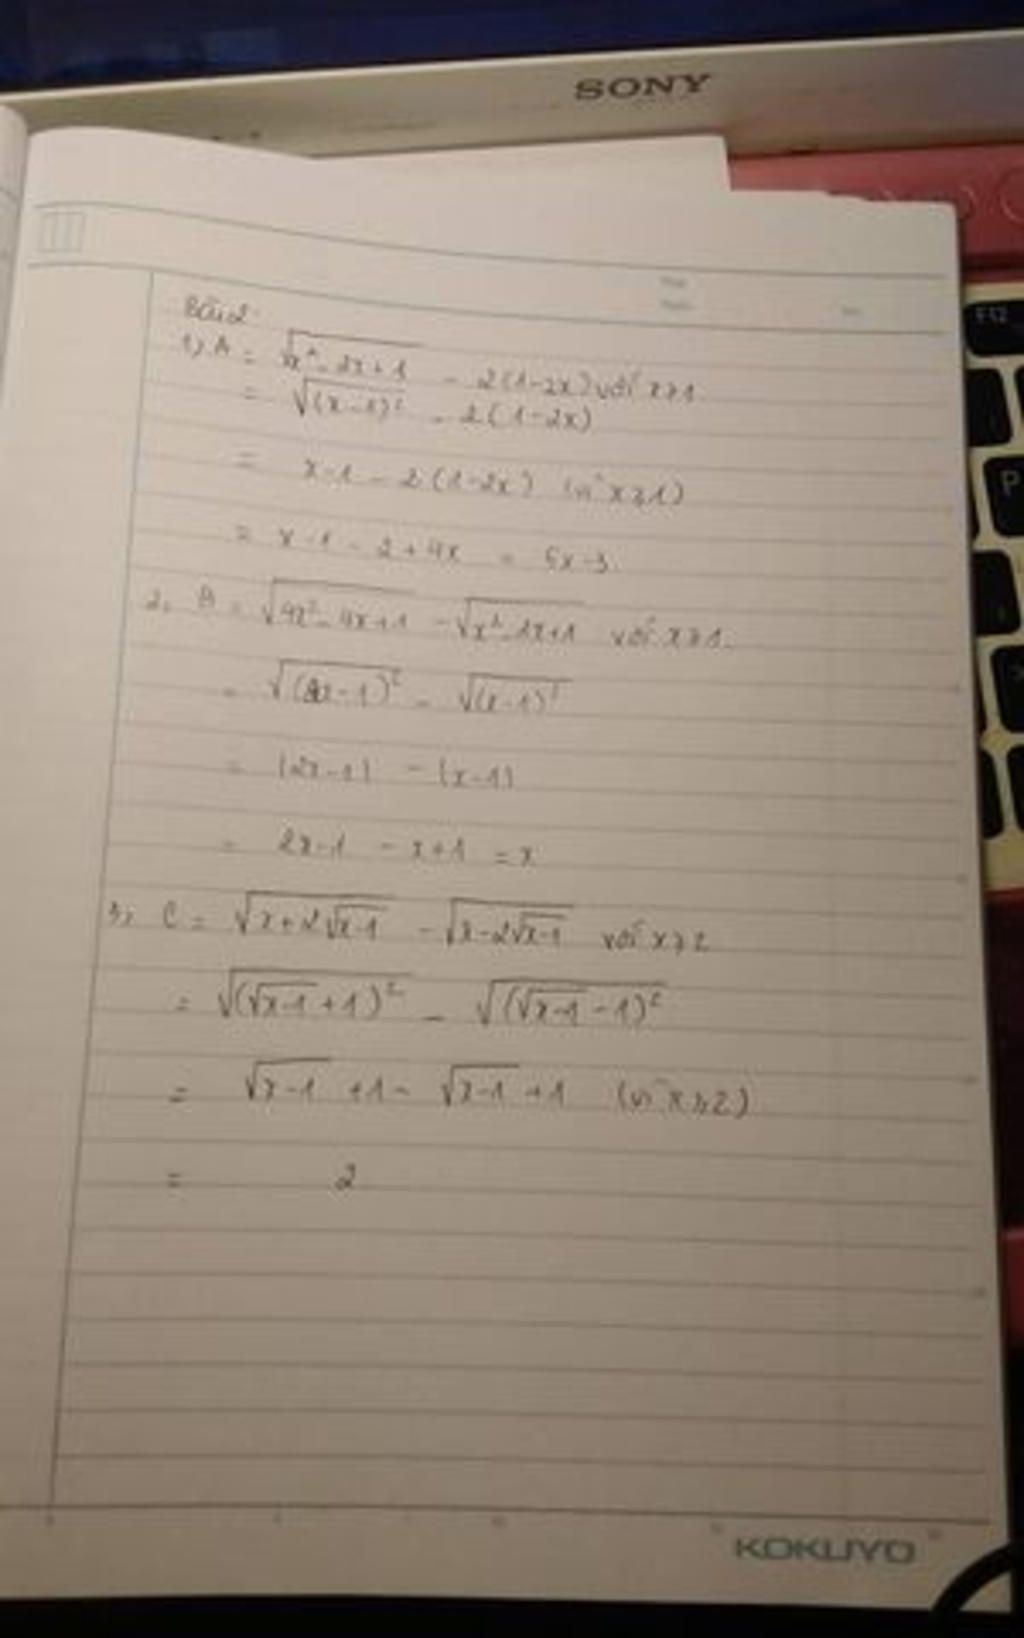 SONY
F12
P
Bài 2
1, A = √(x² - 2x + 1) - 2(1-2x) với x ≥ 1
= √((x-1)²) - 2(1-2x)
= x-1 - 2(1-2x) (vì x ≥ 1)
= x-1 - 2 + 4x = 5x-3
2, B = √(4x² - 4x+1) - √(x² - 2x+1) với x ≥ 1.
= √((2x-1)²) - √((x-1)²)
= |2x-1| - |x-1|
= 2x-1 - x+1 = x
3, C = √(x+2√(x-1)) - √(x-2√(x-1)) với x ≥ 2
= √((√(x-1) +1)²) - √((√(x-1) -1)²)
= √(x-1) +1 - √(x-1) +1 (vì x ≥ 2)
= 2
KOKUYO